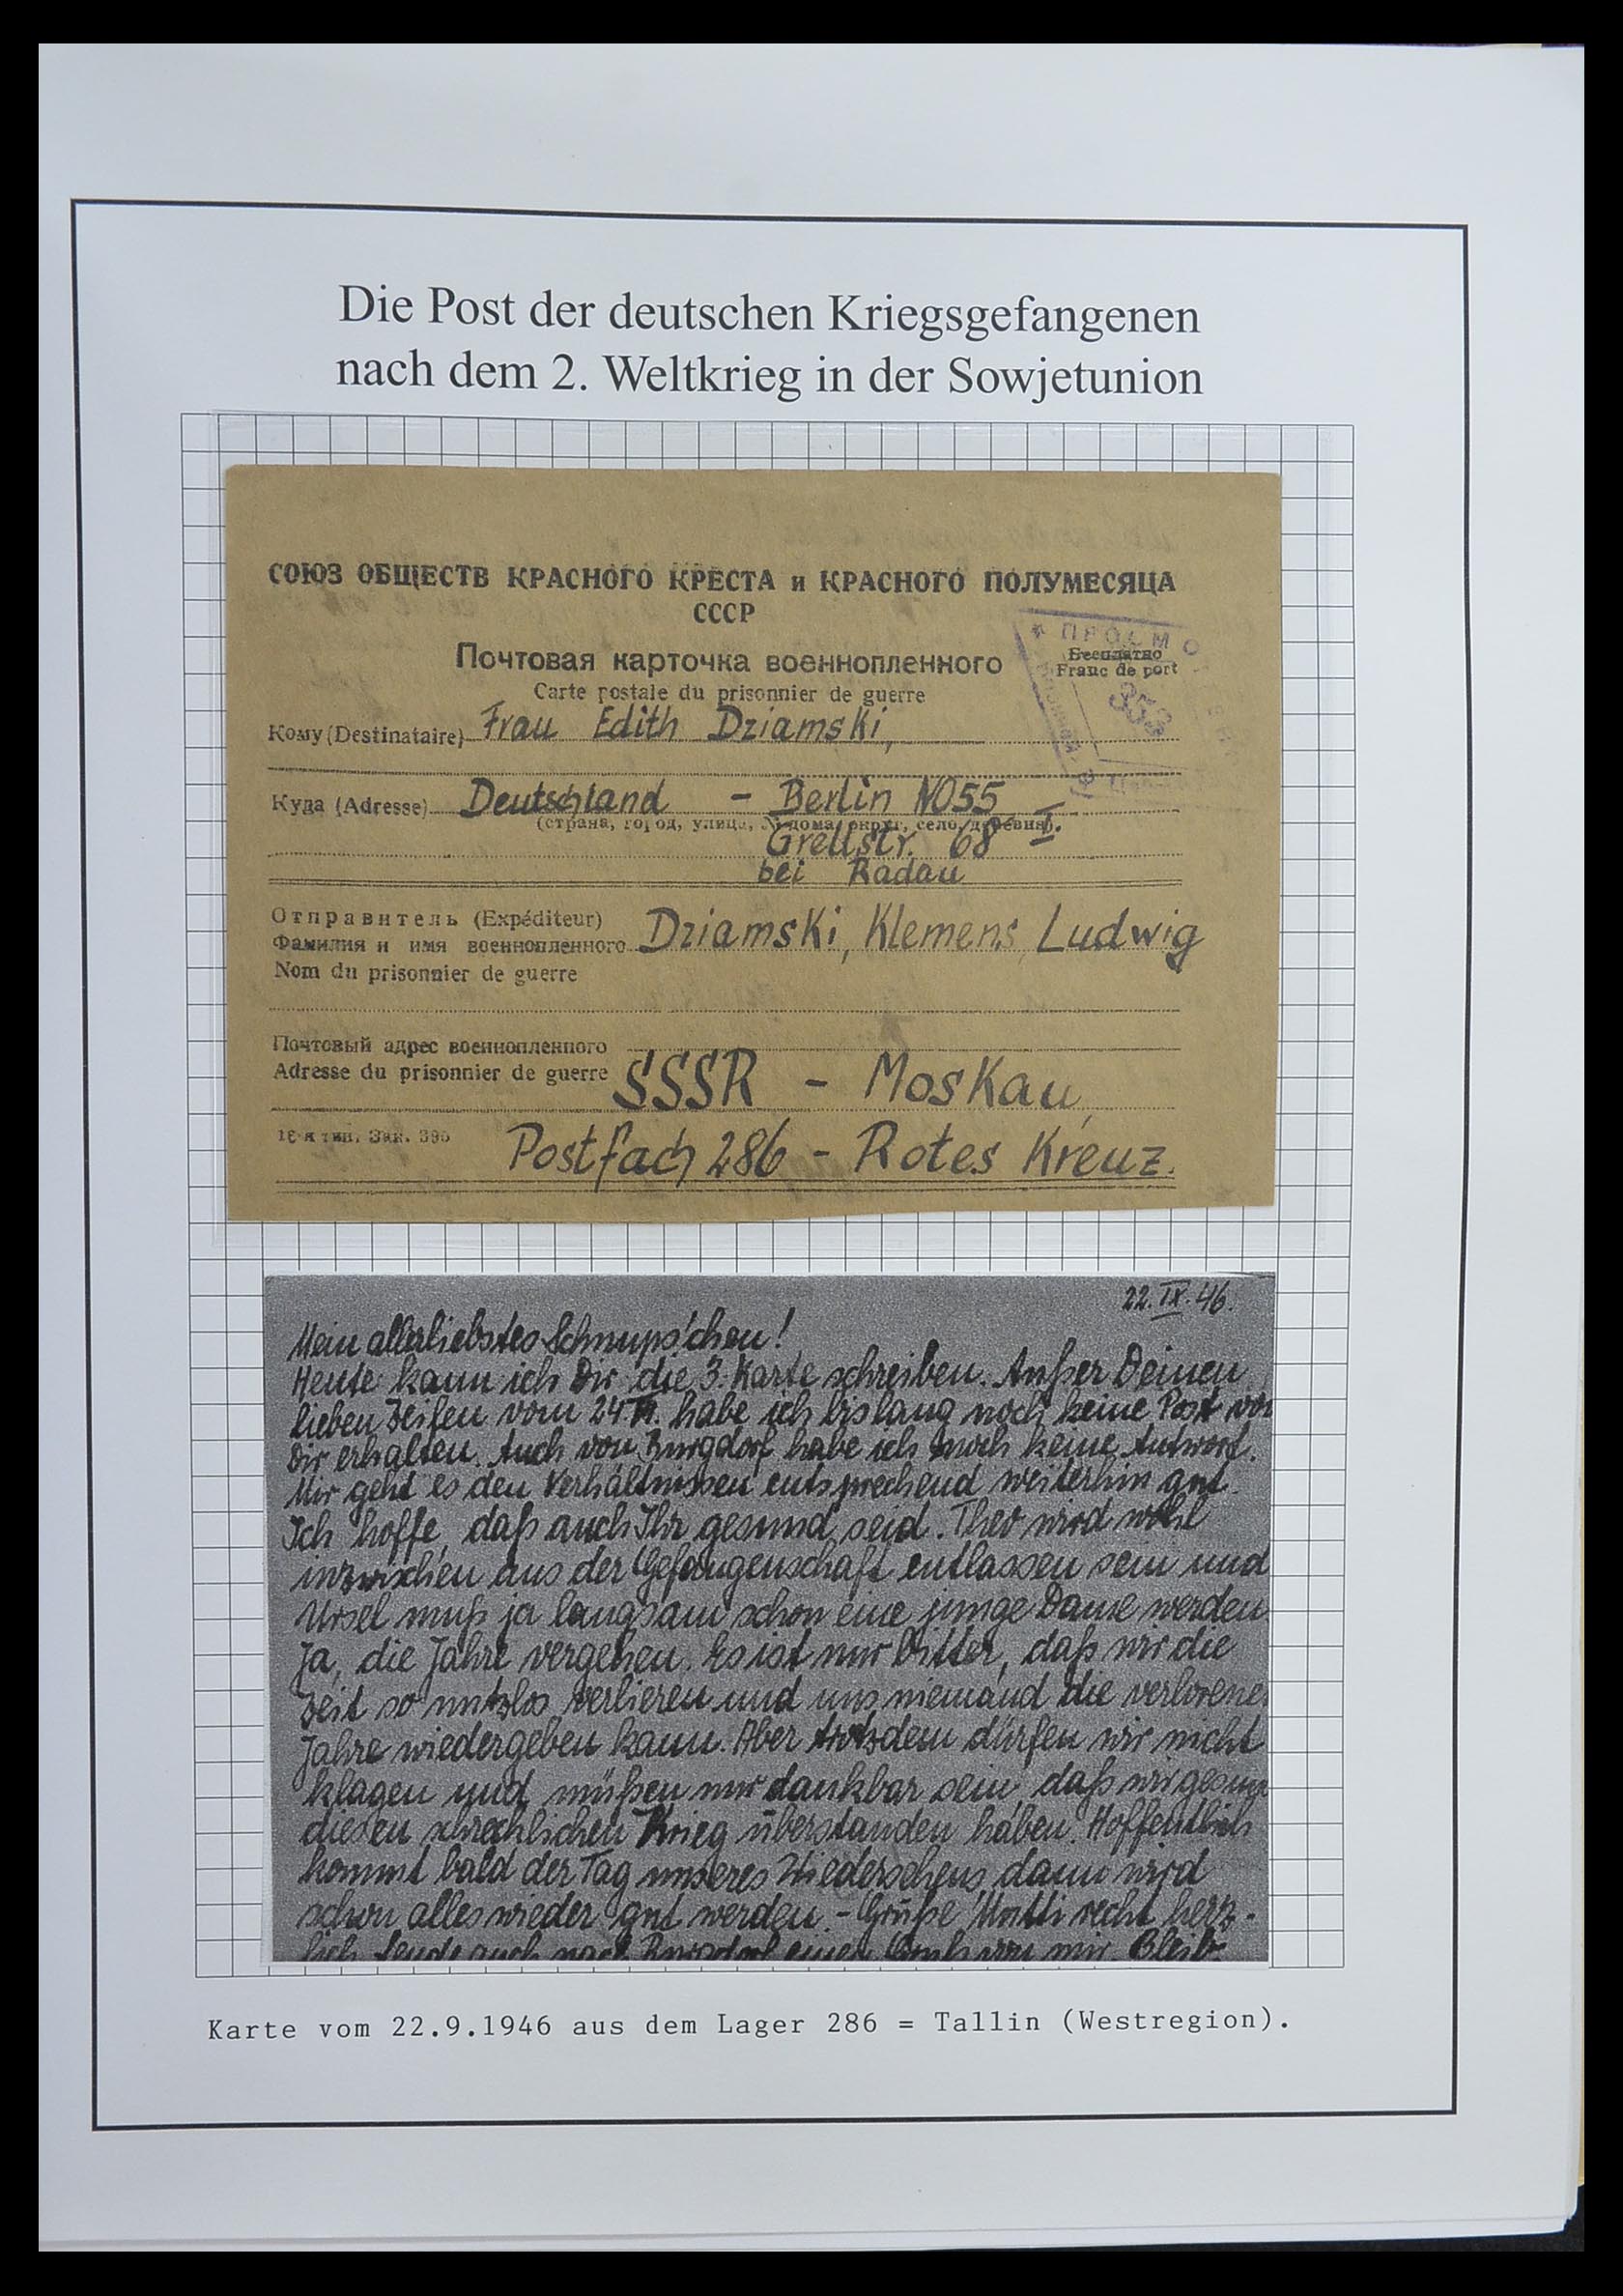 Die Post der deutschen Kriegsgefangenen
nach dem 2. Weltkrieg in der Sowjetunion
СОЮЗ ОБЩЕСТВ КРАСНОГО КРЕСТА и КРАСНОГО ПОЛУМЕСЯЦА
СССР
Почтовая карточка военнопленного
Carte postale du prisonnier de guerre
Бесплатно
Franc de port
* ПРОСМО
353
Кому (Destinataire) Frau Edith Dziamski,
Куда (Adresse) Deutschland - Berlin NO55
(страна, город, улица, № дома, округ, село, деревня).
Grellstr. 68 I.
bei Radau
Отправитель (Expéditeur)
Фамилия и имя военнопленного Dziamski, Klemens Ludwig
Nom du prisonnier de guerre
Почтовый адрес военнопленного
Adresse du prisonnier de guerre SSSR - Moskau,
16-я тип. Зак. 395
Postfach 286 - Rotes Kreuz.
22.IX.46.
Mein allerliebstes Schnups'chen!
Heute kann ich Dir die 3. Karte schreiben. Außer Deinen
lieben Zeilen vom 24. habe ich bislang noch keine Post von
Dir erhalten. Auch von Burgdorf habe ich noch keine Antwort.
Mir geht es den Verhältnissen entsprechend weiterhin gut.
Ich hoffe, daß auch Ihr gesund seid. Theo wird wohl
inzwischen aus der Gefangenschaft entlassen sein und
Ursel muß ja langsam schon eine junge Dame werden.
Ja, die Jahre vergehen. Es ist nur bitter, daß wir die
Zeit so nutzlos verlieren und uns niemand die verlorene
Jahre wiedergeben kann. Aber trotzdem dürfen wir nicht
klagen und müßen nur dankbar sein, daß wir gesun
diesen schrecklichen Krieg überstanden haben. Hoffentlich
kommt bald der Tag unseres Wiedersehens, dann wird
schon alles wieder gut werden. - Grüße Mutti recht herz-
lich. Sende auch nach Burgdorf einen Gruß von mir. Bleib
Karte vom 22.9.1946 aus dem Lager 286 = Tallin (Westregion).